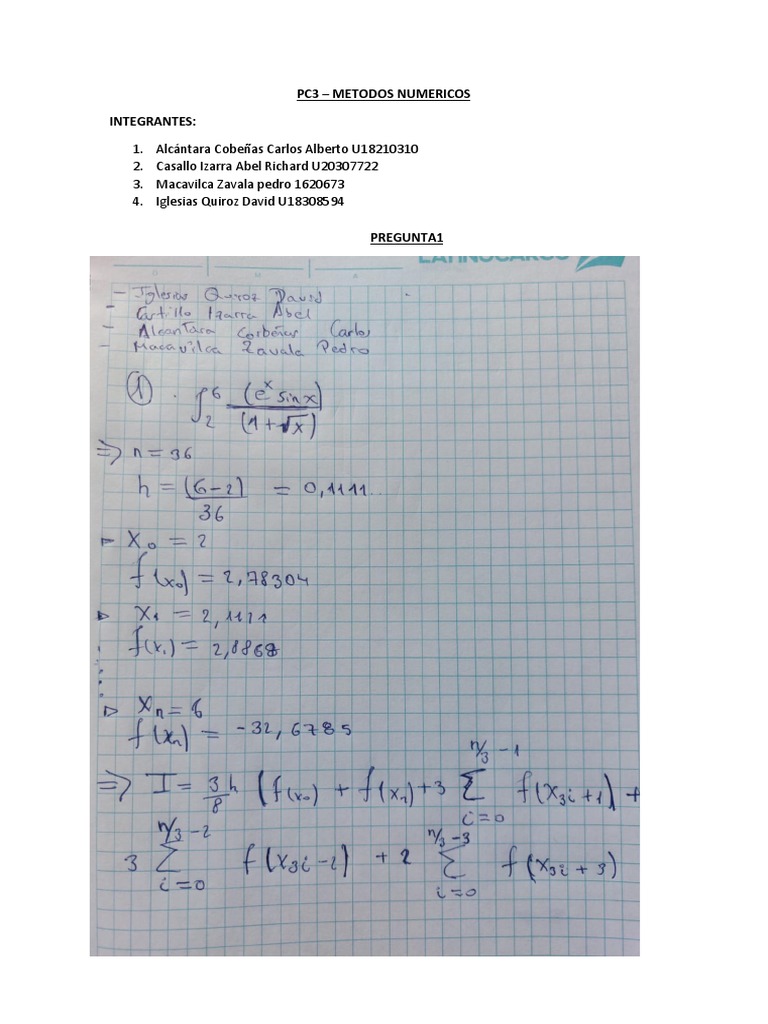 PC3 – METODOS NUMERICOS
INTEGRANTES:
1. Alcántara Cobeñas Carlos Alberto U18210310
2. Casallo Izarra Abel Richard U20307722
3. Macavilca Zavala pedro 1620673
4. Iglesias Quiroz David U18308594
PREGUNTA1
- Iglesias Quiroz David
- Castillo Izarra Abel
- Alcantara Corbeñas Carlos
- Macavilca Zavala Pedro
① . ∫₂⁶ (eˣ sin x) / (1 + √x)
⇒ n = 36
h = (6-2) / 36 = 0,1111..
▷ X₀ = 2
f(x₀) = 2,78304
▷ X₁ = 2,1111
f(x₁) = 2,8868
▷ Xn = 6
f(xn) = -32,6785
⇒ I = 3/8 h (f(x₀) + f(xn) + 3 Σ_{i=0}^{n/3 - 1} f(x3i + 1) +
3 Σ_{i=0}^{n/3 - 2} f(x3i - 2) + 2 Σ_{i=0}^{n/3 - 3} f(x3i + 3)